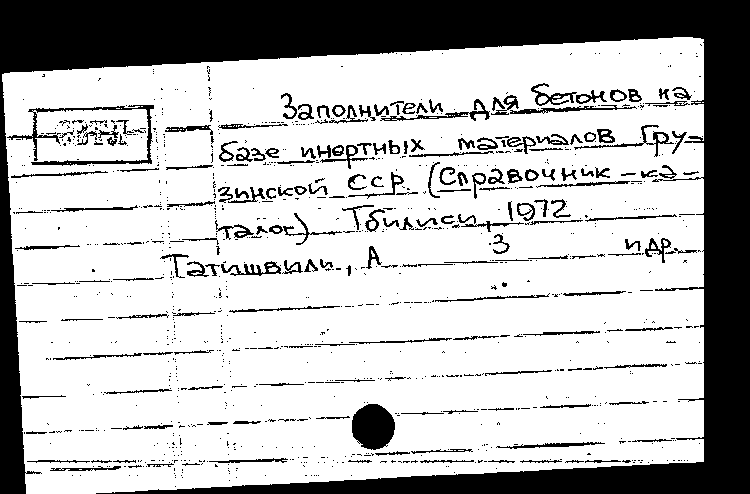 Заполнители для бетонов на
базе инертных материалов Гру-
зинской ССР. (Справочник-ка-
талог). Тбилиси, 1972.
Татишвили, А З и др.